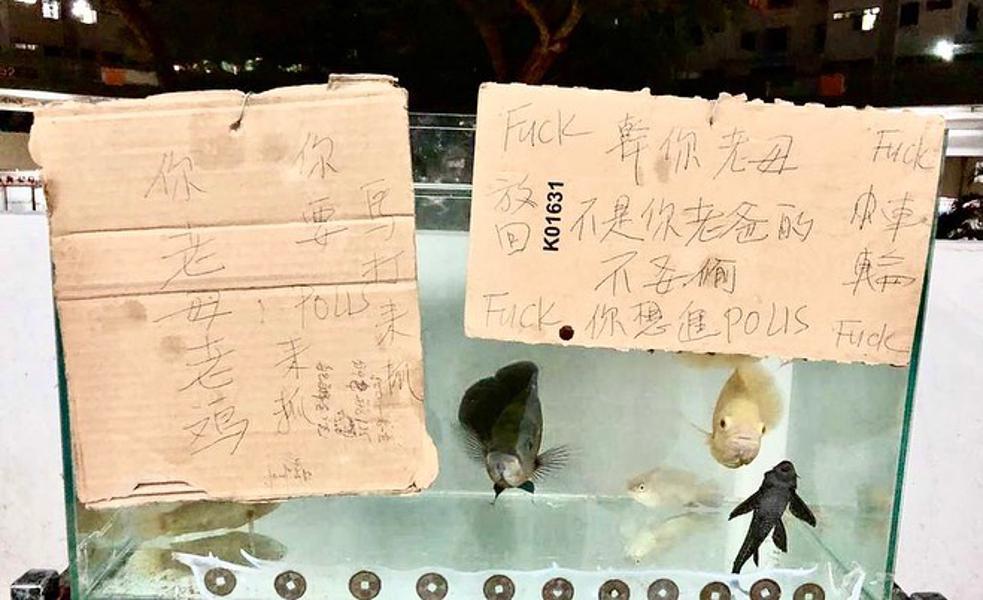 你老母老鸡
你要POLIS来抓
可打来抓
Fuck
幹你老母
Fuck
放回
K01631
不是你老爸的
車輪
不要偷
Fuck
你想進POLIS
Fuck